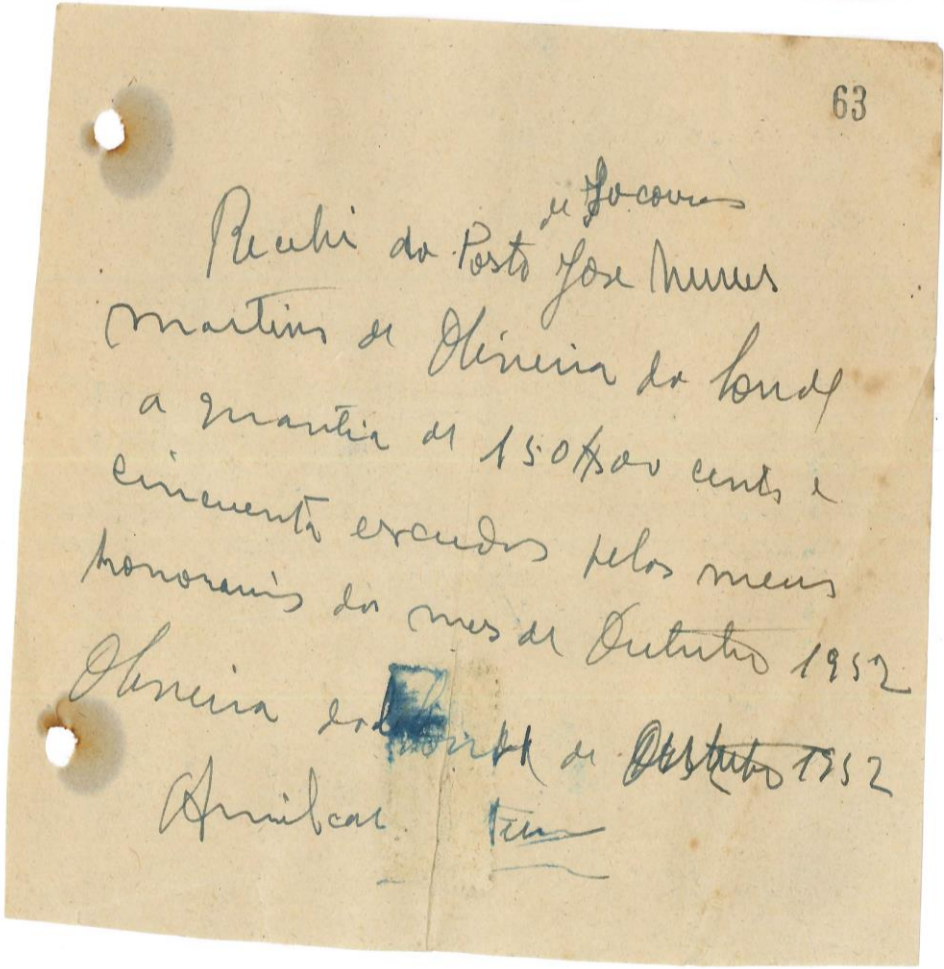 63
de Socorros
Recebi do Posto José Nunes
Martins de Oliveira do Conde
a quantia de 150$00 cento e
cincuenta escudos pelos meus
honorarios do mes de Outubro 1952
Oliveira do Conde de Outubro 1952
Amilcar